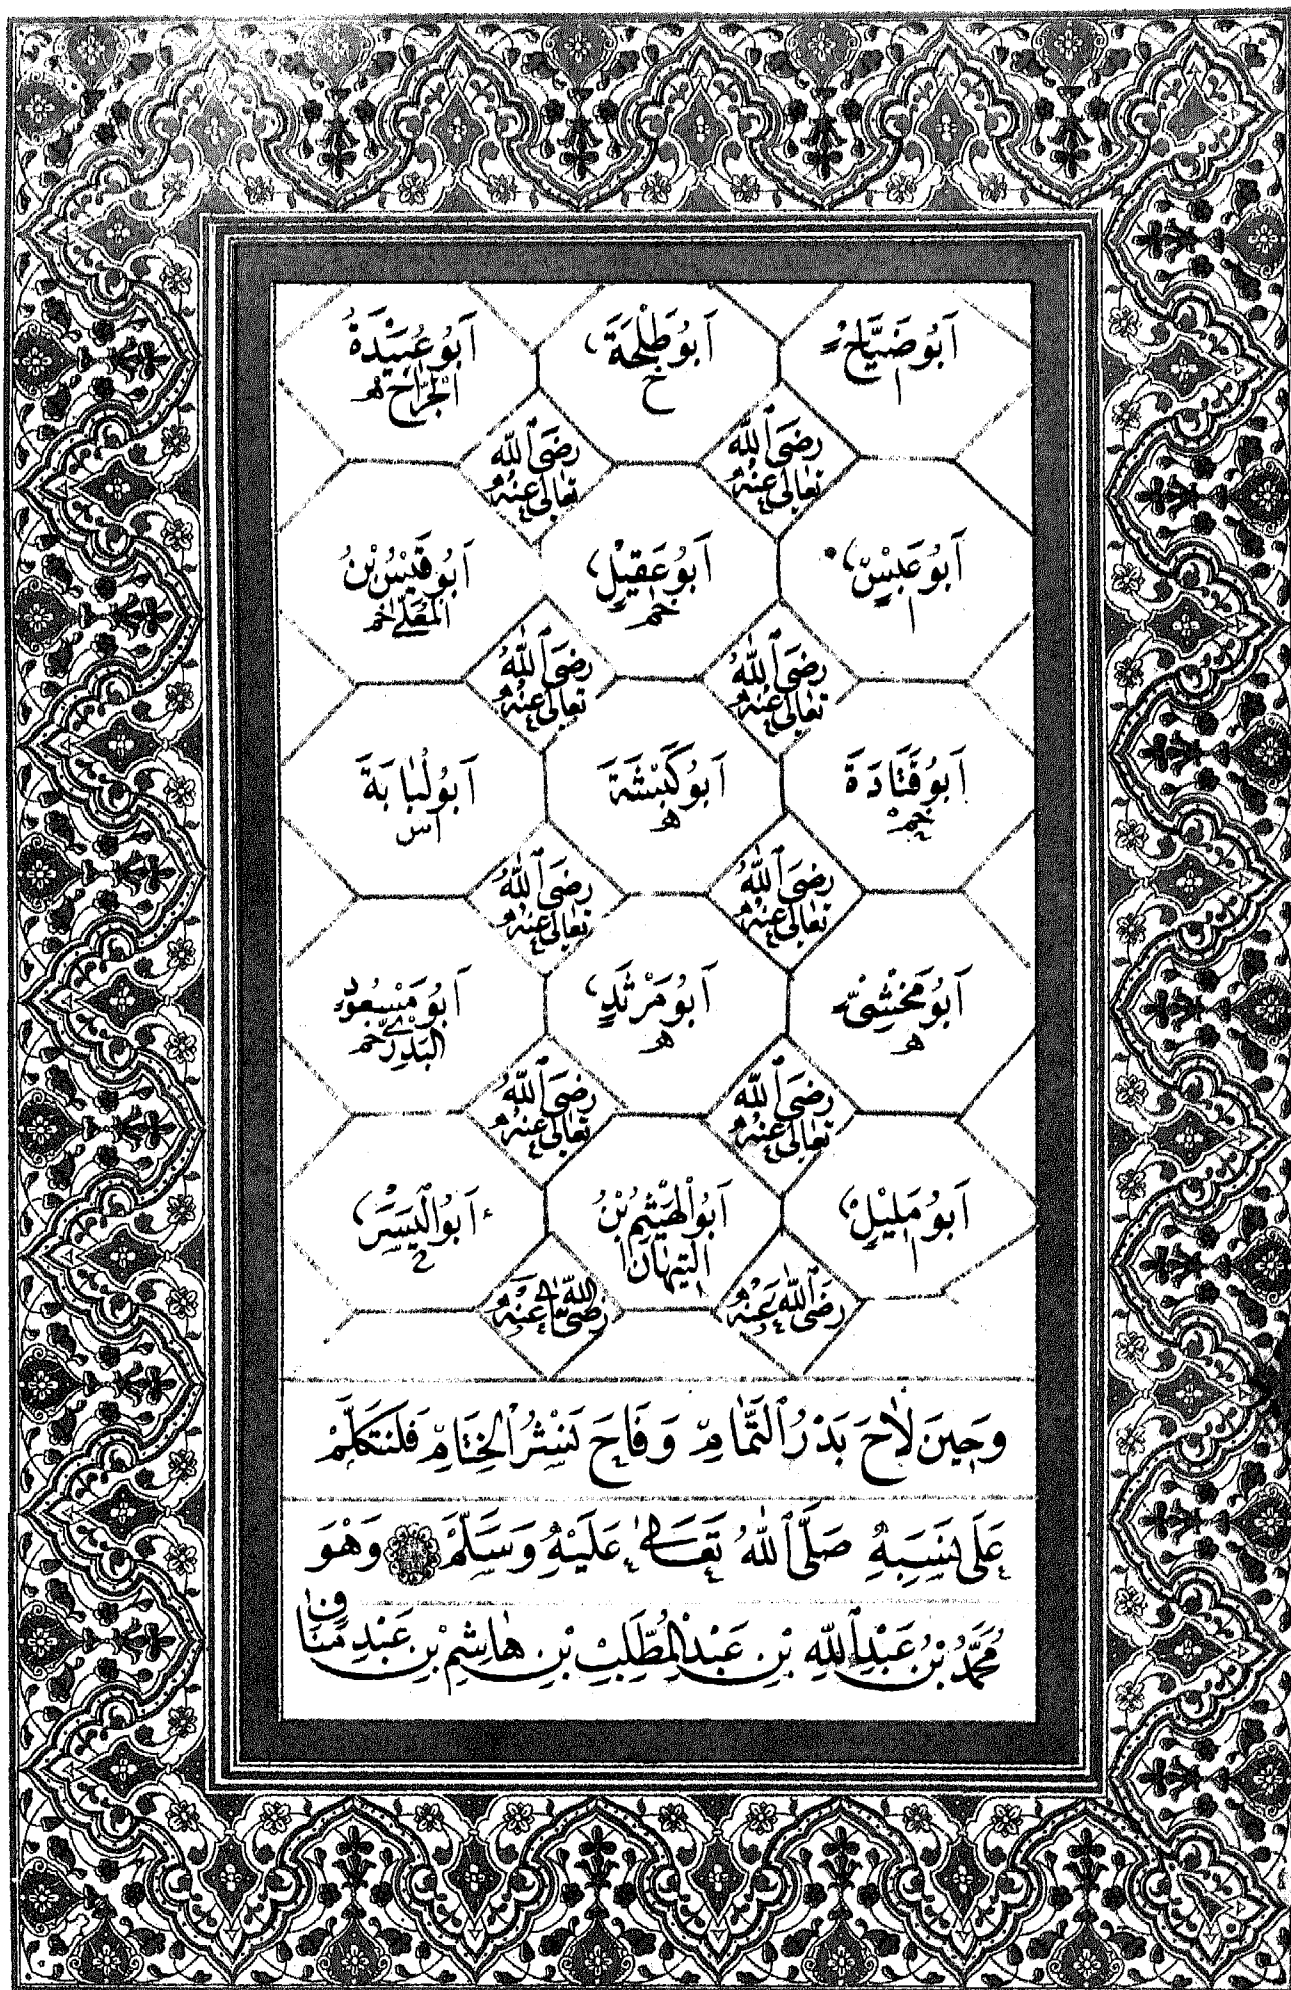 اَبُو ضَيَّاحٍ اَبُو طَلْحَةَ اَبُو عُبَيْدَةُ
ا خ الْجَرَّاحِ ه
رَضِيَ ٱللّٰهُ تَعَالٰى عَنْهُ رَضِيَ ٱللّٰهُ تَعَالٰى عَنْهُ
اَبُو عَبْسٍ اَبُو عَقِيْلٍ اَبُو قَيْسِ بْنُ
ا خم الْمُعَلّٰى خم
رَضِيَ ٱللّٰهُ تَعَالٰى عَنْهُ رَضِيَ ٱللّٰهُ تَعَالٰى عَنْهُ
اَبُو قَتَادَةَ اَبُو كَبْشَةَ اَبُو لُبَابَةَ
خم ه اس
رَضِيَ ٱللّٰهُ تَعَالٰى عَنْهُ رَضِيَ ٱللّٰهُ تَعَالٰى عَنْهُ
اَبُو مَخْشِىٍّ اَبُو مَرْثَدٍ اَبُو مَسْعُودٍ
ه ه الْبَدْرِيّ خم
رَضِيَ ٱللّٰهُ تَعَالٰى عَنْهُ رَضِيَ ٱللّٰهُ تَعَالٰى عَنْهُ
اَبُو مُلَيْلٍ اَبُو الْهَيْثَمِ بْنُ اَبُو الْيَسَرِ
ا التَّيِّهَانِ ا ح
رَضِيَ ٱللّٰهُ عَنْهُ رَضِيَ ٱللّٰهُ تَعَالٰى عَنْهُ
وَحِينَ لَاحَ بَدْرُ ٱلتَّمَامِ وَفَاحَ نَشْرُ الْخِتَامِ فَلْنَتَكَلَّمْ
عَلَى نَسَبِهِ صَلَّى ٱللّٰهُ تَعَالٰى عَلَيْهِ وَسَلَّمَ وَهْوَ
مُحَمَّدُ بْنُ عَبْدِ ٱللّٰهِ بْنِ عَبْدِ الْمُطَّلِبِ بْنِ هَاشِمِ بْنِ عَبْدِ مَنَافِ